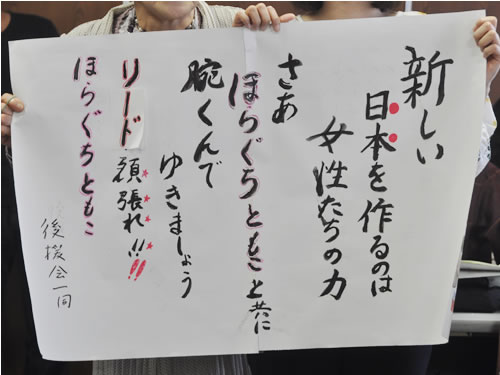 新しい
日本を作るのは
女性たちの力
さあ
ほらぐちともこと共に
腕くんで
ゆきましょう
リード頑張れ!!!
ほらぐちともこ
後援会一同